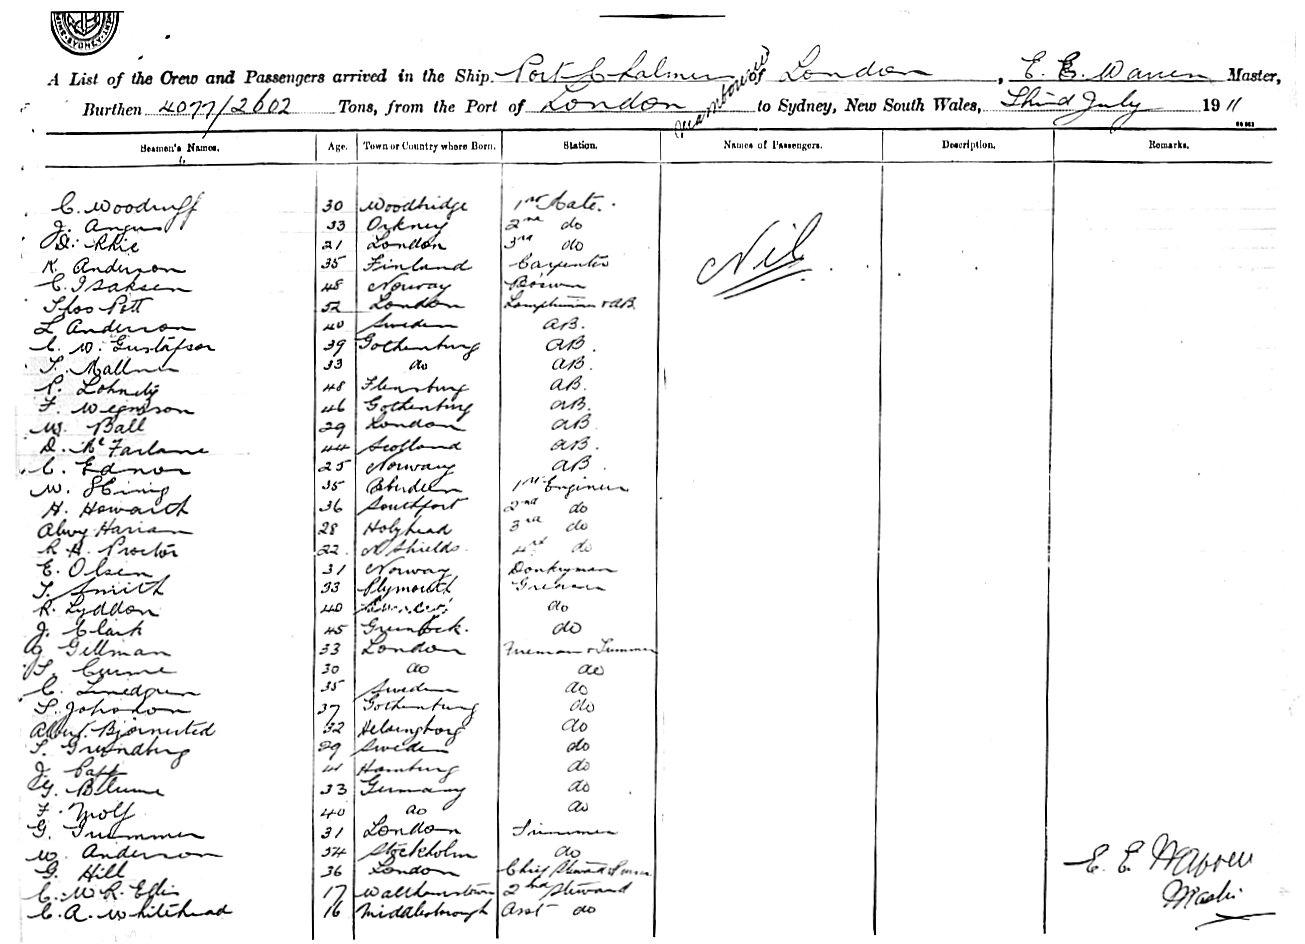 SYDNEY
A List of the Crew and Passengers arrived in the Ship Port Chalmers of London, E. E. Warren Master,
Burthen 4077/2602 Tons, from the Port of London to Sydney, New South Wales, Third July 1911
Seamen's Names. Age. Town or Country where Born. Station. Names of Passengers. Description. Remarks.
C. Woodruff 30 Woodbridge 1st Mate.
J. Angus 33 Orkney 2nd do
D. 21 London 3rd do
K. Anderson 35 Finland Carpenter
C. Isaksen 48 Norway Boswn
Thos Pott 52 London Lamptrimmer & AB.
Nil
L Anderson 40 Sweden AB.
C. W. Gustafson 39 Gothenburg AB.
T. 33 do AB.
P. 48 Flensburg AB.
F. 46 Gothenburg AB.
W. Ball 29 London AB
D. McFarlane 44 Scotland AB.
C. Ednor 25 Norway AB.
W. 35 Aberdeen 1st Engineer
H. Howarth 36 Southport 2nd do
28 Holyhead 3rd do
R. H. Proctor 22. N Shields. 4th do
E. Olsen 31 Norway Donkeyman
T. Smith 33 Plymouth Greaser
R. Lyddon 40 do
J. Clark 45 Greenock. do
Gillman 33 London Fireman & Trimmer
T. 30 do do
C. 35 Sweden do
S. Johnson 37 Gothenburg do
Albert. Bjornsted 32 Helsingborg do
T. Grundberg 29 Sweden do
J. 41 Hamburg do
G. Blume 33 Germany do
F. Wolf 40 do do
G. Trummer 31 London Trimmer
W. Anderson 54 Stockholm do
G. Hill 36 London Chief Steward
E. E. Warren
C. W. R. Ellis 17 Walthamstow 2nd Steward
Master
C. A. Whitehead 16 Middlesborough Asst do